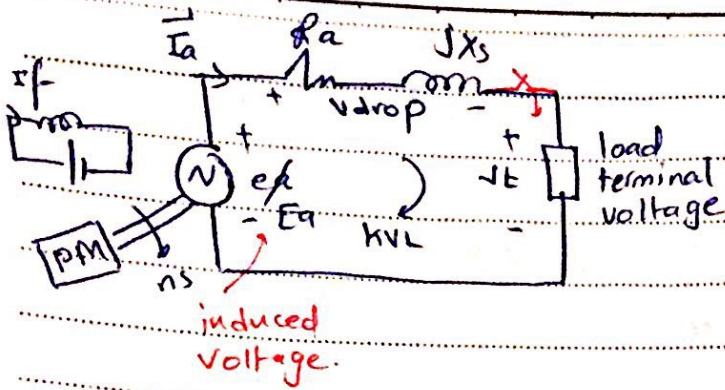 Ia
Ra
jXs
If
+ Vdrop -
+
ea
- Ea
KVL
+
Vt
-
load
terminal
voltage
PM
ns
induced
voltage.